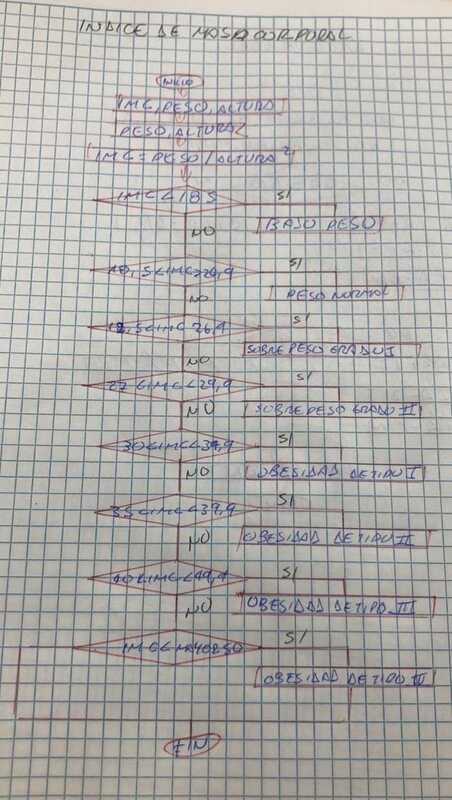 INDICE DE MASA CORPORAL
INICIO
IMC, PESO, ALTURA
PESO, ALTURA
IMC = PESO / ALTURA ²
IMC < 18 5
SI
NO
BAJO PESO
18,5<IMC>24,9
SI
NO
PESO NORMAL
18,5<IMC<26,9
SI
NO
SOBREPESO GRADO I
27<IMC<29,9
SI
NO
SOBREPESO GRADO II
30<IMC<34,9
SI
NO
OBESIDAD DE TIPO I
35<IMC<39,9
SI
NO
OBESIDAD DE TIPO II
40<IMC<49,9
SI
NO
OBESIDAD DE TIPO III
SI
OBESIDAD DE TIPO
FIN